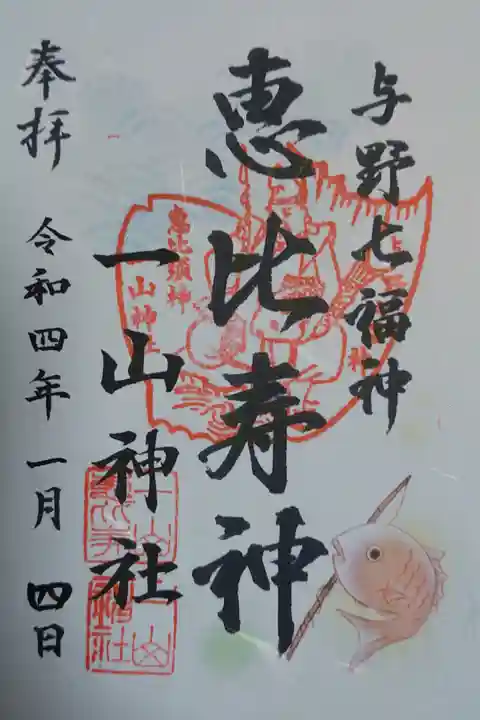 与野七福神
恵比寿神
一山神社
奉拝 令和四年一月四日
恵比須神
一山神社